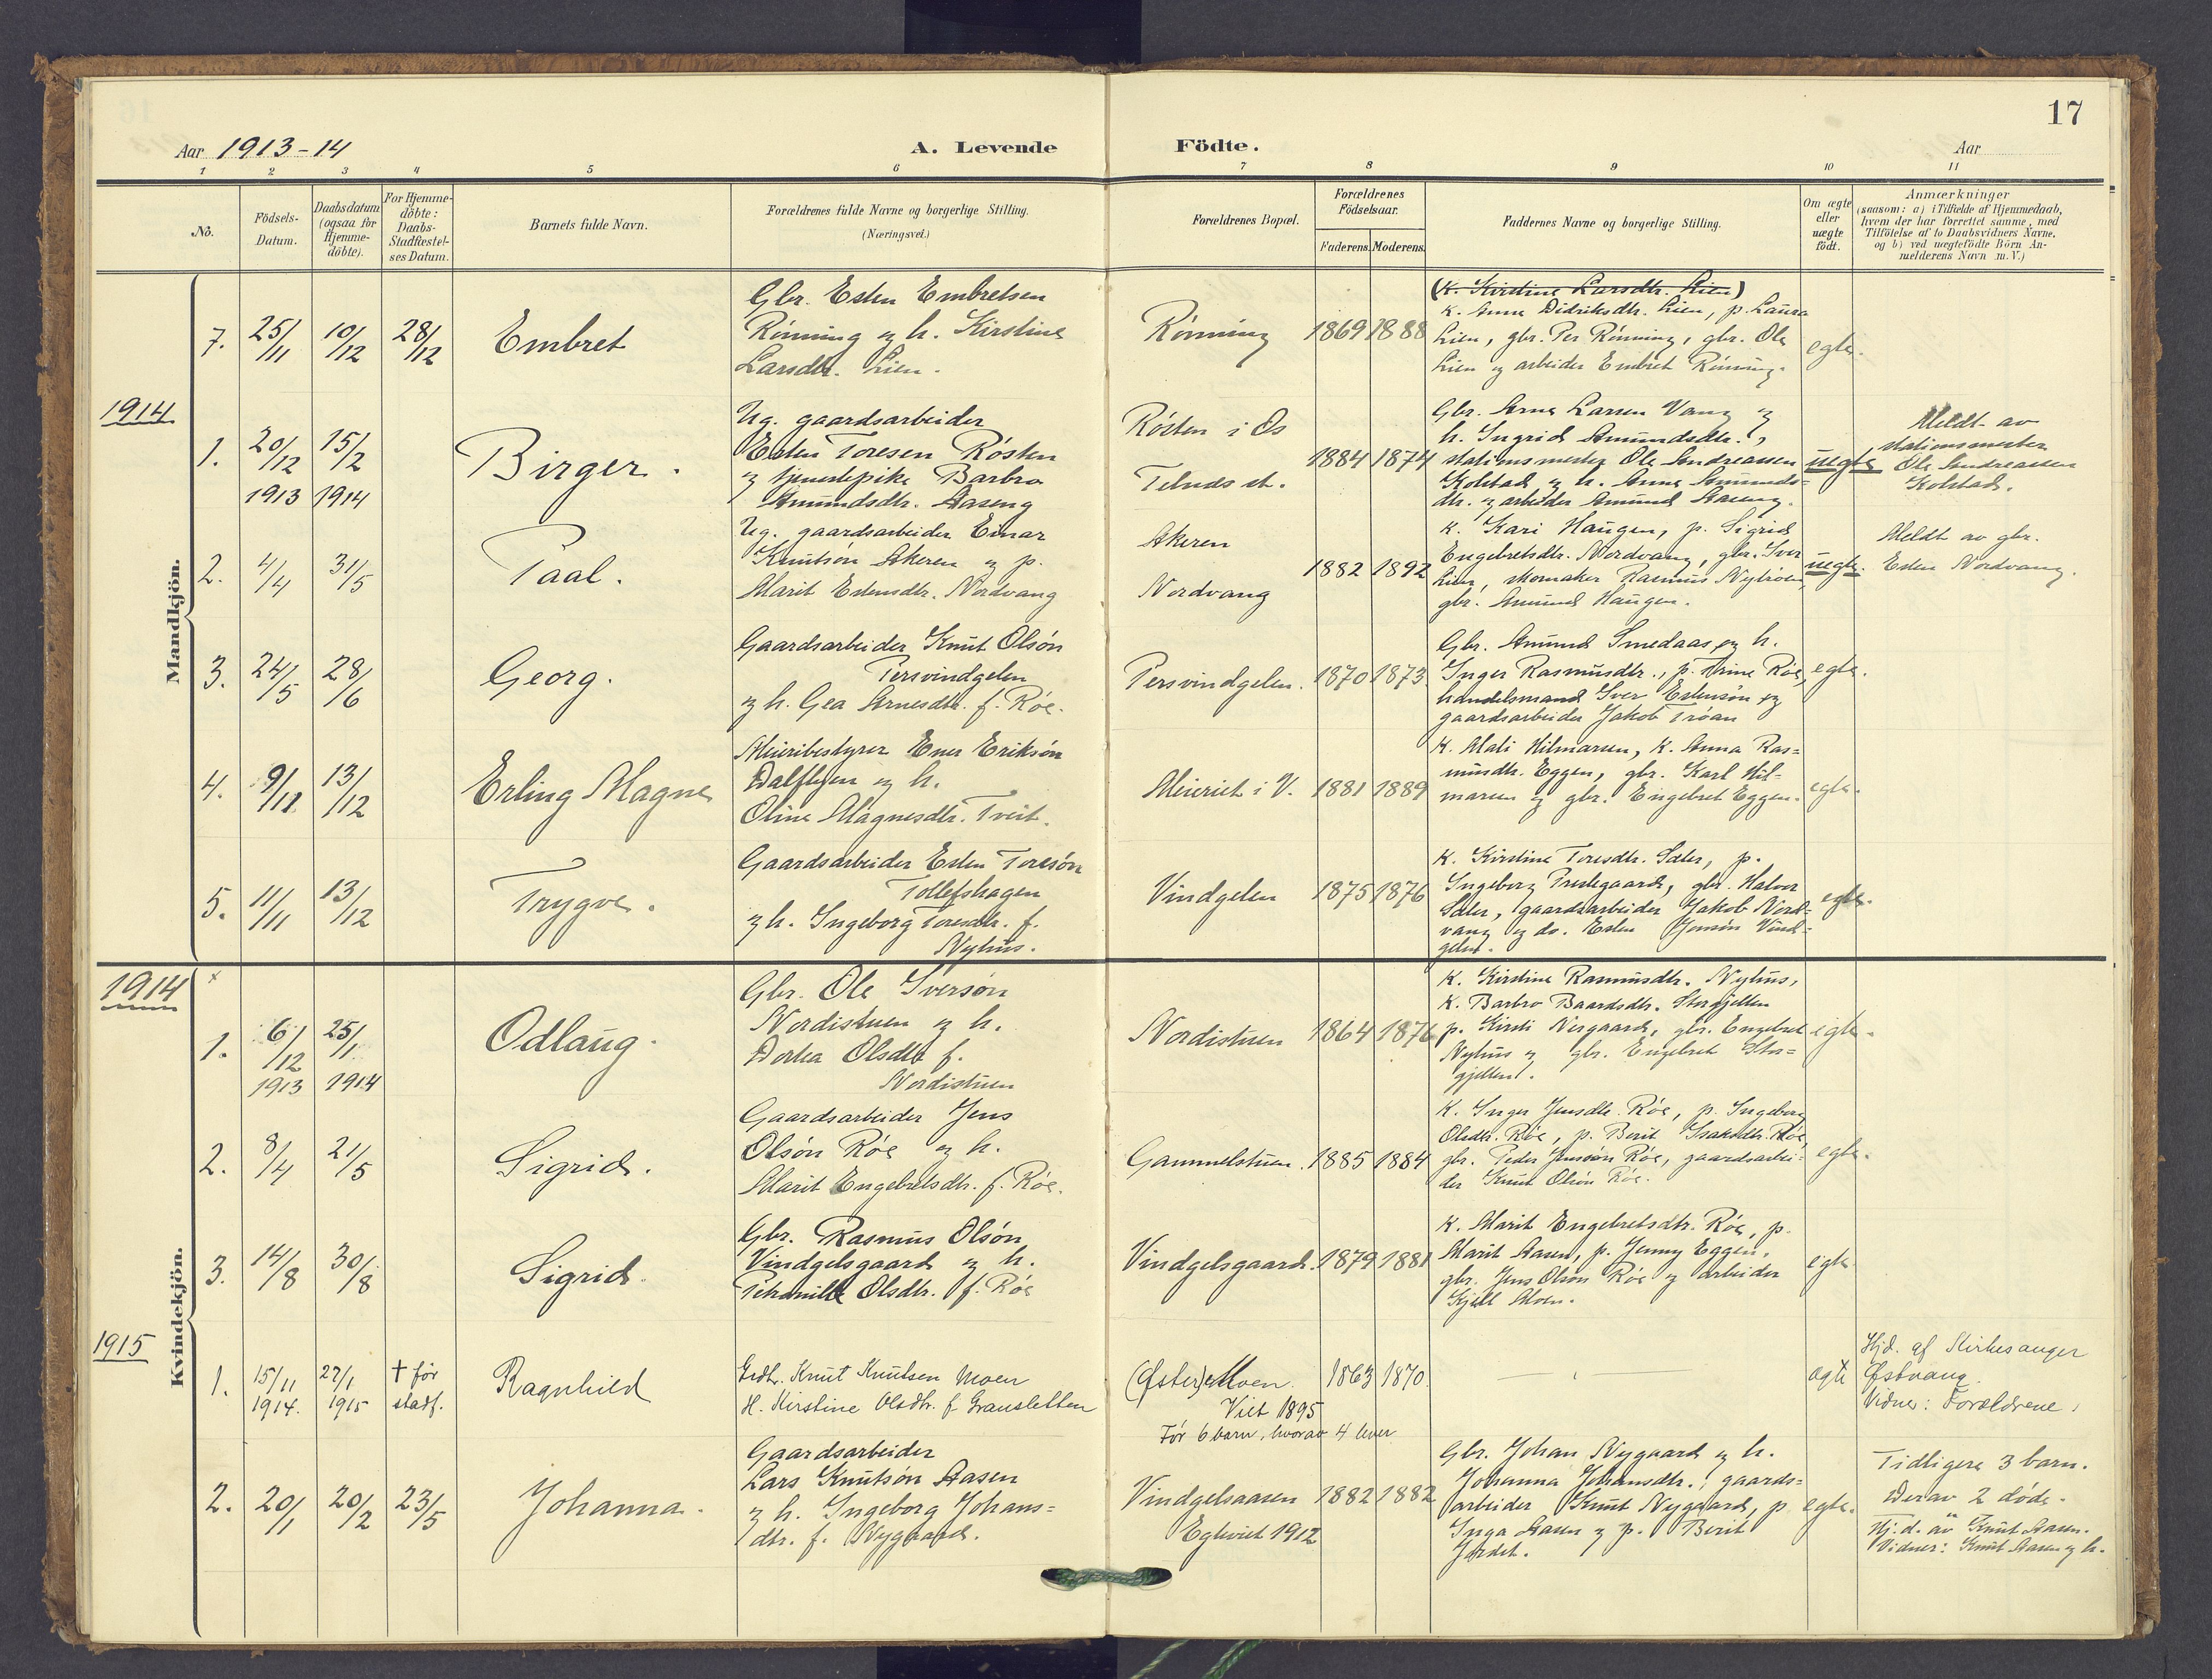 17
Aar 1913-14
A. Levende
Födte.
Aar
1 2 3 4 5 6 7 8 9 10 11
No.
Födsels-
Datum.
Daabsdatum
(ogsaa for
Hjemme-
döbte).
For Hjemme-
döbte:
Daabs-
Stadfæstel-
ses Datum.
Barnets fulde Navn.
Forældrenes fulde Navne og borgerlige Stilling.
(Næringsvei.)
Forældrenes Bopæl.
Forældrenes
Födselsaar.
Faderens. Moderens.
Faddernes Navne og borgerlige Stilling.
Om ægte
eller
uægte
födt.
Anmærkninger
(saasom: a) i Tilfælde af Hjemmedaab,
hvem der har forrettet samme, med
Tilföielse af to Daabsvidners Navne,
og b) ved uægtefödte Börn An-
melderens Navn m.V.)
Mandkjön.
7. 25/11 10/12 28/12 Embret
Gbr. Esten Embretsen
Rönning og h. Kirstine
Larsdtr. Lien.
Rönning 1869 1888
(K. Kirstine Larsdtr. Lien)
K. Anne Didriksdtr. Lien, p. Laura
Lien, gbr. Per Rönning, gbr. Ole
Lien og arbeider Embret Rönning.
egte.
1914
1. 20/12 1913 15/2 1914 Birger.
Ug. gaardsarbeider
Esten Toresen Rösten
og tjenestepike Barbro
Amundsdtr. Aaseng
Rösten i Os
Telnæs st.
1884 1874
Gbr. Arne Larsen Vang og
h. Ingrid Amundsdtr.,
stationsmester Ole Andreassen
Kolstad og h. Anne Amunds-
dtr. og arbeider Amund Aaseng.
uegte
Meldt av
stationsmester
Ole Andreassen
Kolstad.
2. 4/4 31/5 Paal.
Ug. gaardsarbeider Einar
Knutsön Akeren og p.
Marit Estensdtr. Nordvang
Akeren
Nordvang
1882 1892
K. Kari Haugen, p. Sigrid
Engebretsdtr. Nordvang, gbr. Iver
Lien, skomaker Rasmus Nytröen,
gbr. Amund Haugen.
uegte.
Meldt av gbr.
Esten Nordvang.
3. 24/5 28/6 Georg.
Gaardsarbeider Knut Olsön
Persvindgelen
og h. Gea Arnesdtr. f. Röe.
Persvindgelen. 1870 1873
Gbr. Amund Smedaas og h.
Inger Rasmusdtr., p. Trine Röe,
handelsmand Iver Estensön og
gaardsarbeider Jakob Tröan
egte.
4. 9/11 13/12 Erling Magne
Meieribestyrer Ener Eriksön
Dalflyen og h.
Oline Magnesdtr. Tveit.
Meieriet i V. 1881 1889
K. Mali Hilmarsen, K. Anna Ras-
musdtr. Eggen, gbr. Karl Hil-
marsen og gbr. Engebret Eggen.
egte.
5. 11/11 13/12 Trygve.
Gaardsarbeider Esten Toresön
Tollefshagen
og h. Ingeborg Toresdtr. f.
Nyhus.
Vindgelen 1875 1876
K. Kirstine Toresdtr. Sæter, p.
Ingeborg Prestegaard, gbr. Halvor
Sæter, gaardsarbeider Jakob Nord-
vang og do. Esten Jonsön Vind-
gelen.
egte.
Kvindekjön.
1914 x
1. 6/12 1913 25/1 1914 Odlaug.
Gbr. Ole Iversön
Nordistuen og h.
Dortea Olsdtr f.
Nordistuen
Nordistuen 1864 1876
K. Kirstine Rasmusdtr. Nyhus,
K. Barbro Baardsdtr. Storgjelten
p. Kirsti Nergaard, gbr. Engebret
Nyhus og gbr. Engebret Stor-
gjelten.
egte.
2. 8/4 21/5 Sigrid.
Gaardsarbeider Jens
Olsön Röe og h.
Marit Engebretsdtr. f. Röe.
Gammelstuen. 1885 1884
K. Inger Jensdtr. Röe, p. Ingeborg
Olsdtr. Röe, p. Berit Isaksdtr. Röe,
gbr. Peder Jensøn Röe, gaardsarbei-
der Knut Olsön Röe.
egte.
3. 14/8 30/8 Sigrid.
Gbr. Rasmus Olsön
Vindgelsgaard og h.
Petronille Olsdtr. f. Röe
Vindgelsgaard. 1879 1881
K. Marit Engebretsdtr. Röe, p.
Marit Aasen, p. Jenny Eggen,
gbr. Jens Olsön Röe og arbeider
Kjell Moen.
egte
1915
1. 15/11 1914. 27/1 1915 † før stadf. Ragnhild
Grdbr. Knut Knutsen Moen
H. Kirstine Olsdtr. f. Gransletten
(Øster) Moen. 1863 1870.
Viet 1895
Før 6 barn, hvorav 4 lever
ægte
Hjd. af Kirkesanger
Østvang.
Vidner: Forældrene.
2. 20/1 20/2 23/5 Johanna.
Gaardsarbeider
Lars Knutsön Aasen
og h. Ingeborg Johans-
dtr. f. Nygaard.
Vindgelsaasen 1882 1882
Egteviet 1912
Gbr. Johan Nygaard og h.
Johanna Johansdtr., gaards-
arbeider Knut Nygaard, p.
Inga Aasen og p. Berit
Jordet.
egte.
Tidligere 3 barn.
Derav 2 döde.
Hj.d. av Knut Aasen.
Vidner: Knut Aasen og h.